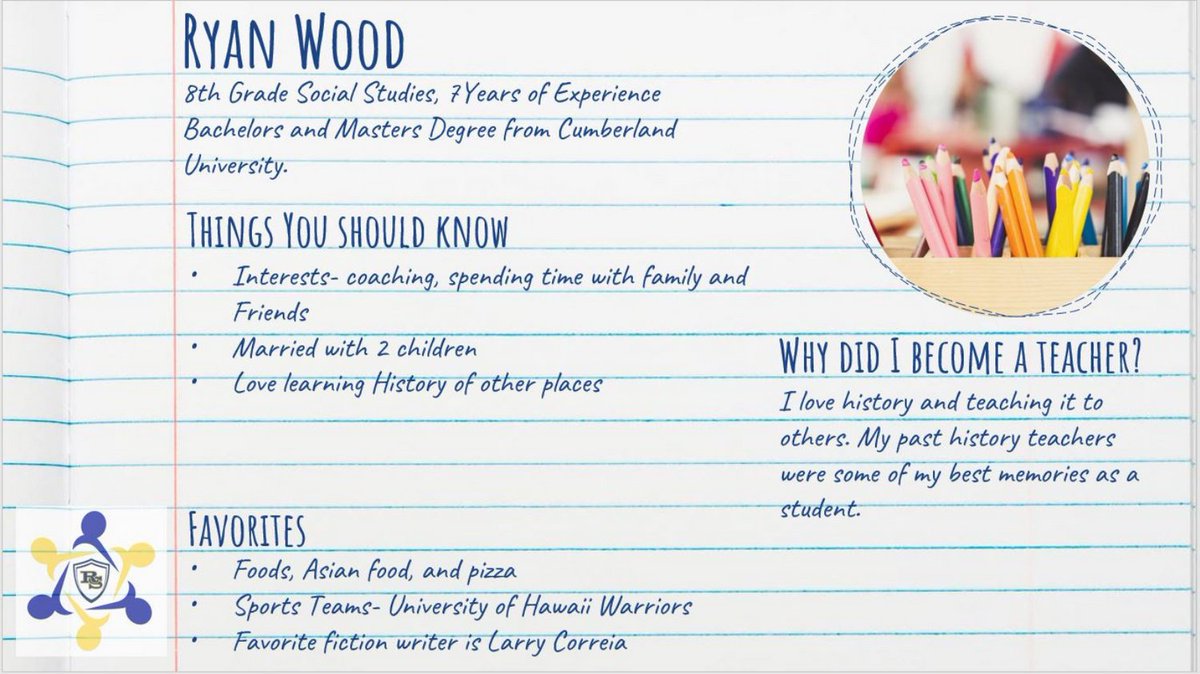 Ryan Wood
8th Grade Social Studies, 7Years of Experience
Bachelors and Masters Degree from Cumberland
University.
Things You should know
• Interests- coaching, spending time with family and
Friends
• Married with 2 children
• Love learning History of other places
Why did I become a teacher?
I love history and teaching it to
others. My past history teachers
were some of my best memories as a
student.
Favorites
• Foods, Asian food, and pizza
• Sports Teams- University of Hawaii Warriors
• Favorite fiction writer is Larry Correia
RS